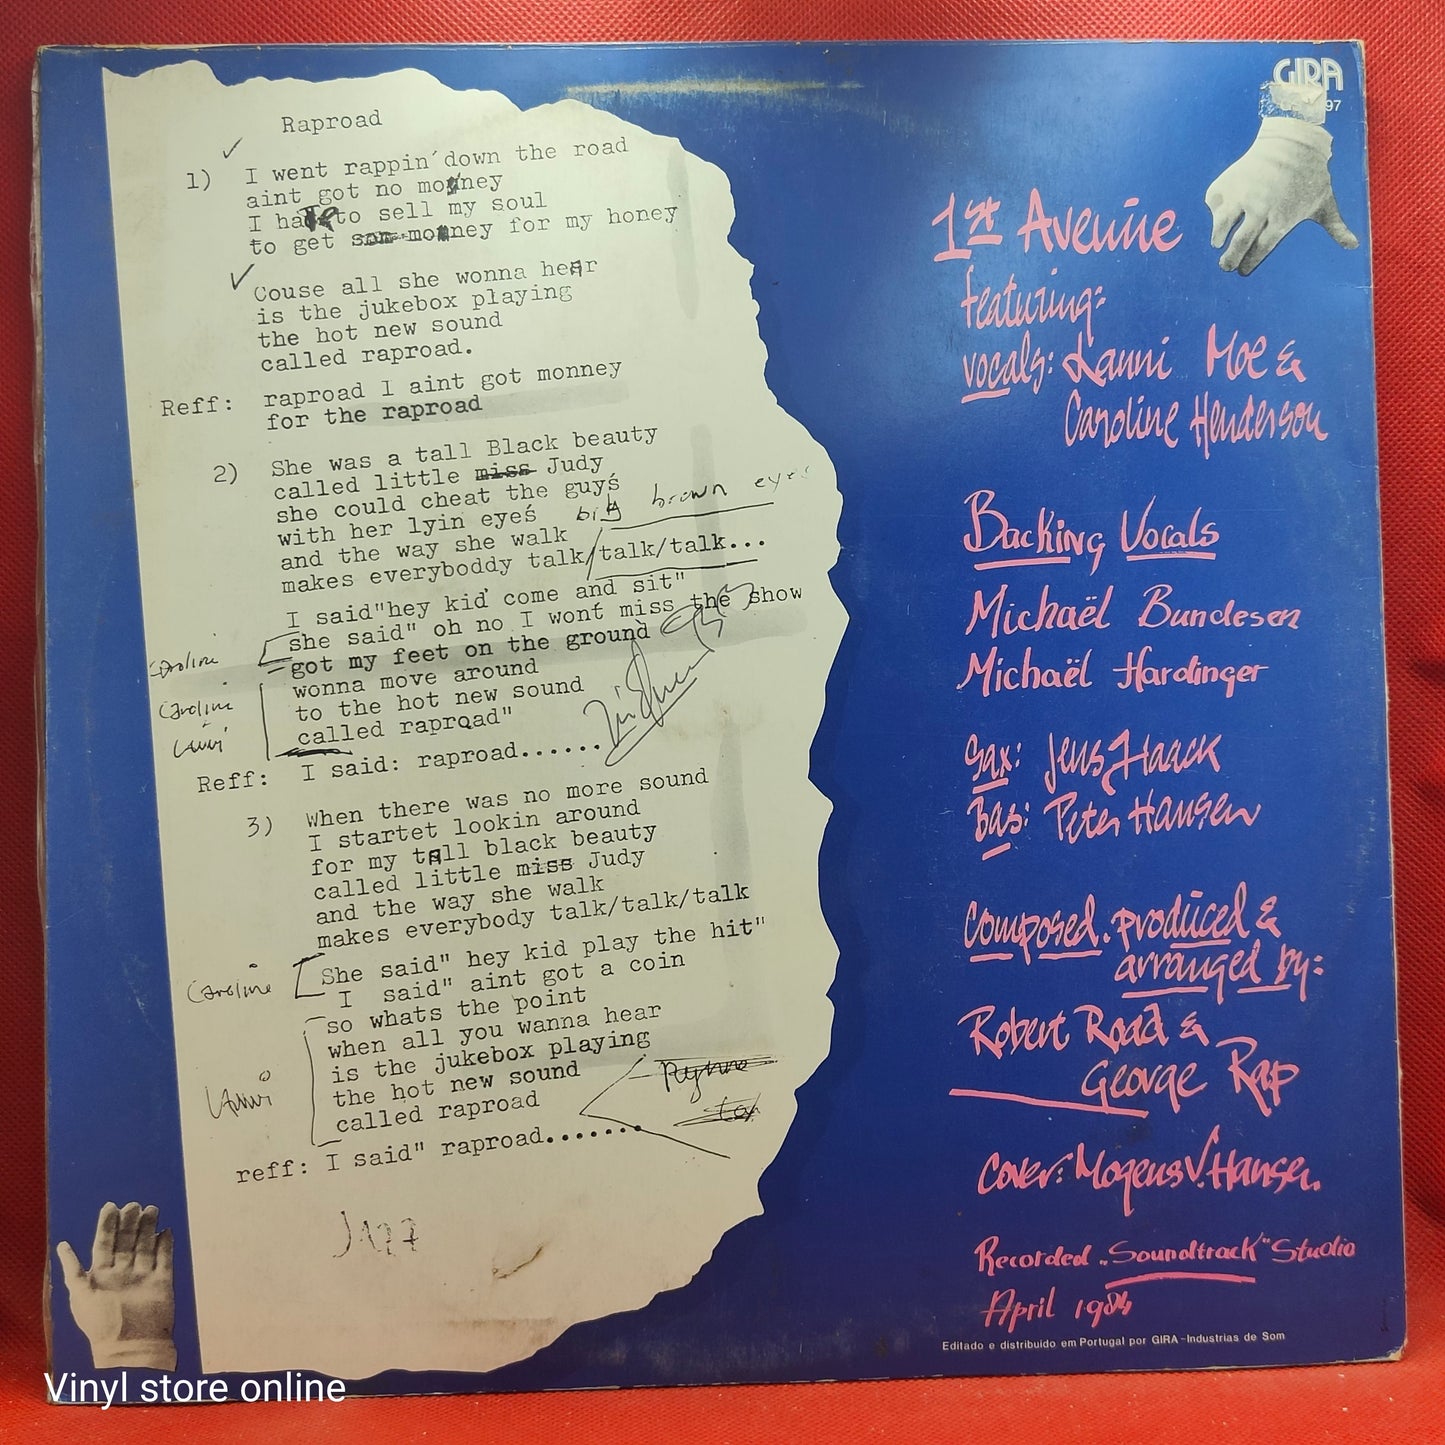 GIRA
97
Raproad
1) I went rappin'down the road
aint got no money
I have to sell my soul
to get som money for my honey
Couse all she wonna hear
is the jukebox playing
the hot new sound
called raproad.
Reff: raproad I aint got monney
for the raproad
2) She was a tall Black beauty
called little miss Judy
she could cheat the guys
with her lyin eyes big brown eyes
and the way she walk
makes everyboddy talk/talk/talk...
I said"hey kid come and sit"
she said" oh no I wont miss the show
Caroline got my feet on the ground
wonna move around
Caroline to the hot new sound
+ Lanni called raproad"
Reff: I said: raproad......
3) When there was no more sound
I startet lookin around
for my tall black beauty
called little miss Judy
and the way she walk
makes everybody talk/talk/talk
Caroline She said" hey kid play the hit"
I said" aint got a coin
so whats the point
when all you wanna hear
is the jukebox playing
Lanni the hot new sound
called raproad
reff: I said" raproad.......
1st Avenue
featuring:
vocals: Lanni Moe &
Caroline Henderson
Backing Vocals
Michaël Bundesen
Michaël Hardinger
Sax: Jens Haack
Bas: Peter Hansen
Composed. produced &
arranged by:
Robert Road &
George Rap
Cover: Mogens V. Hansen.
Recorded "Soundtrack" Studio
April 1984
Editado e distribuido em Portugal por GIRA-Industrias de Som
Vinyl store online